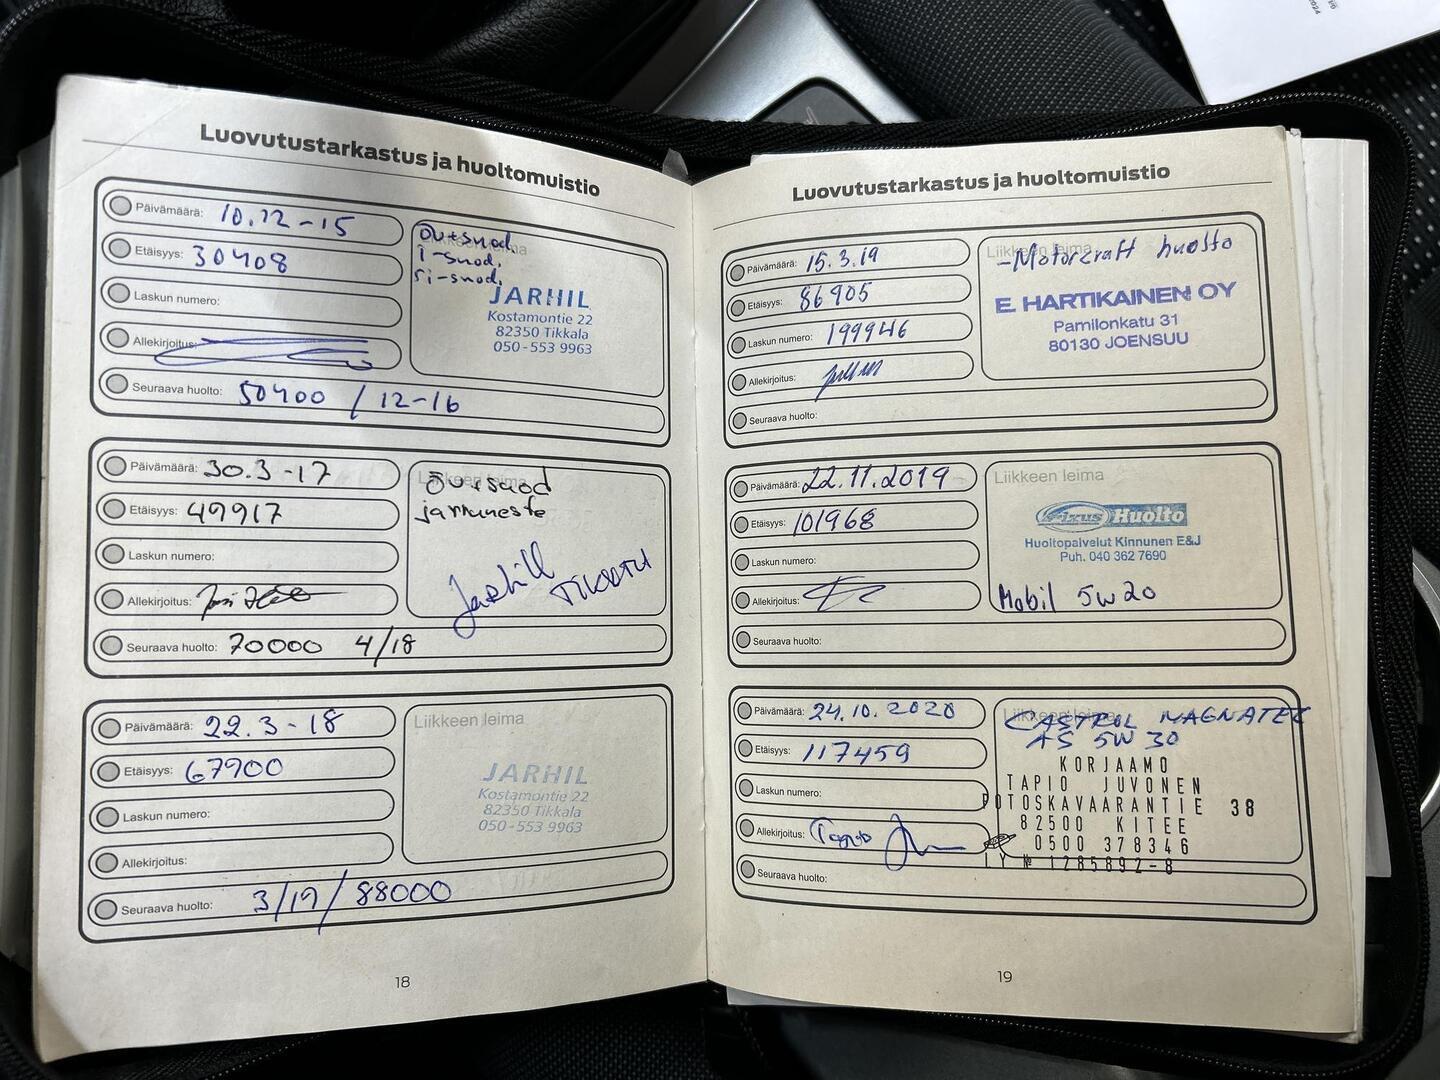 Luovutustarkastus ja huoltomuistio
Päivämäärä: 10.12-15
Etäisyys: 30408
Laskun numero:
Allekirjoitus:
Seuraava huolto: 50400 / 12-16
Liikkeen leima
öv+suod.
i-suod.
si-suod.
JARHIL
Kostamontie 22
82350 Tikkala
050-553 9963
Päivämäärä: 30.3-17
Etäisyys: 49917
Laskun numero:
Allekirjoitus:
Seuraava huolto: 70000 4/18
Liikkeen leima
öv+suod
jarruneste
Jarhill
Päivämäärä: 22.3-18
Etäisyys: 67900
Laskun numero:
Allekirjoitus:
Seuraava huolto: 3/19/88000
Liikkeen leima
JARHIL
Kostamontie 22
82350 Tikkala
050-553 9963
18
Luovutustarkastus ja huoltomuistio
Päivämäärä: 15.3.19
Etäisyys: 86905
Laskun numero: 199946
Allekirjoitus:
Seuraava huolto:
Liikkeen leima
-Motorcraft huolto
E. HARTIKAINEN OY
Pamilonkatu 31
80130 JOENSUU
Päivämäärä: 22.11.2019
Etäisyys: 101968
Laskun numero:
Allekirjoitus:
Seuraava huolto:
Liikkeen leima
Fixus Huolto
Huoltopalvelut Kinnunen E&J
Puh. 040 362 7690
Mobil 5w20
Päivämäärä: 24.10.2020
Etäisyys: 117459
Laskun numero:
Allekirjoitus: Tapio
Seuraava huolto:
Liikkeen leima
CASTROL MAGNATEC
A5 5W30
KORJAAMO
TAPIO JUVONEN
POTOSKAVAARANTIE 38
82500 KITEE
0500 378346
LY № 1285892-8
19